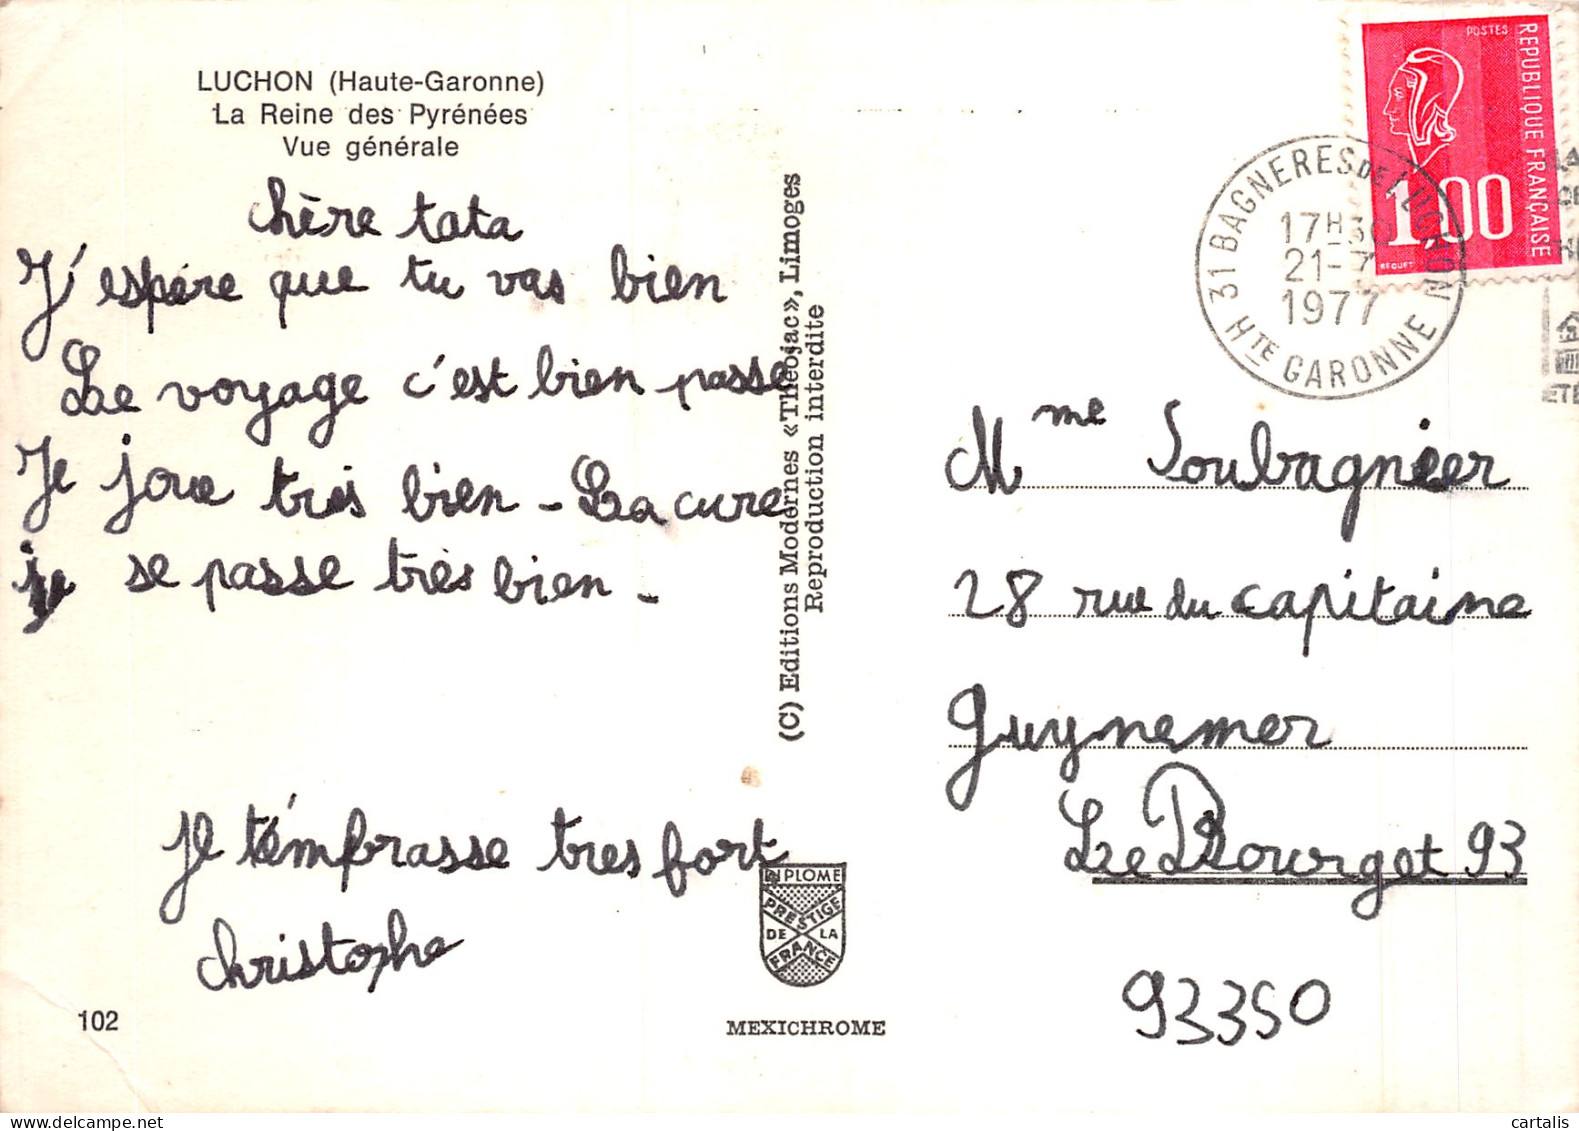 LUCHON (Haute-Garonne)
La Reine des Pyrénées
Vue générale
chère tata
J'espére que tu vas bien
Le voyage c'est bien passe
Je joue très bien - La cure
se passe très bien -
Je t'émbrasse tres fort
christophe
102
(C) Editions Modernes «Théojac», Limoges
Reproduction interdite
DIPLOME
PRESTIGE
DE LA
FRANCE
MEXICHROME
POSTES
REPUBLIQUE FRANÇAISE
1,00
BEQUET
31 BAGNERES DE LUCHON
17H30
21-7
1977
HTE GARONNE
LA
CE
ETE
Mme Soubagnier
28 rue du capitaine
Guynemer
Le Bourget 93
93350
cartalis.com